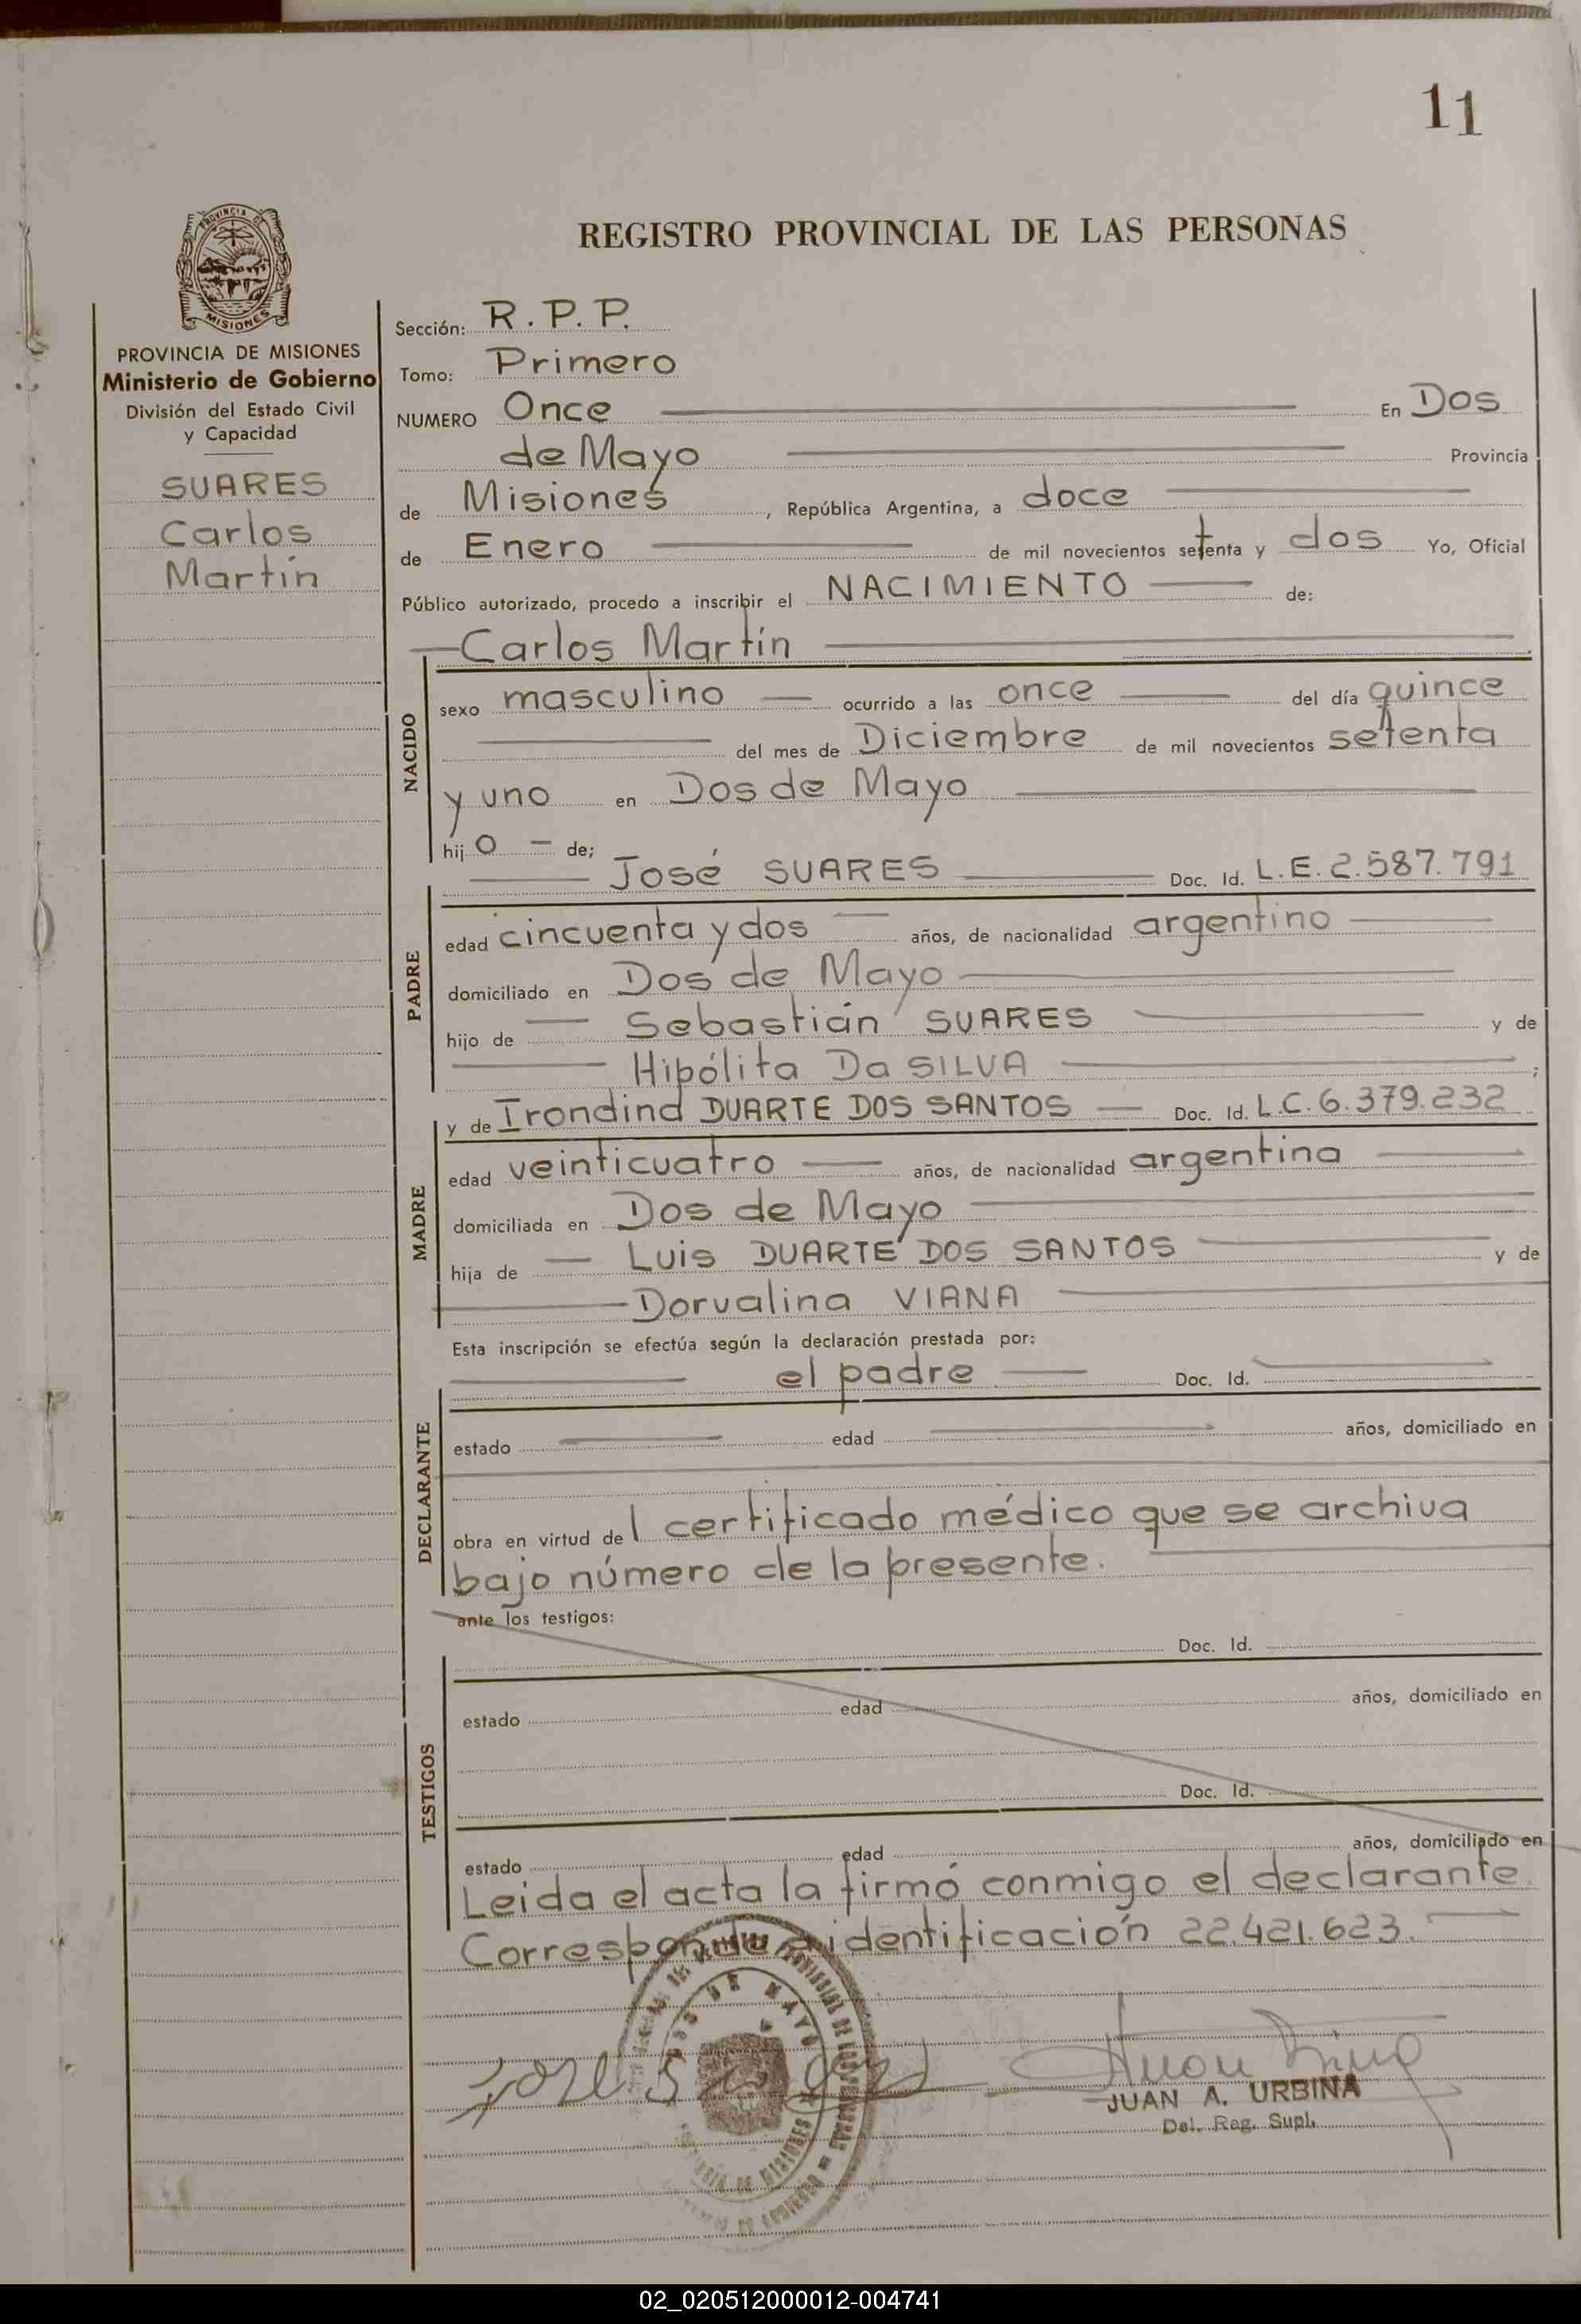 11
PROVINCIA DE MISIONES
REGISTRO PROVINCIAL DE LAS PERSONAS
PROVINCIA DE MISIONES
Ministerio de Gobierno
División del Estado Civil
y Capacidad
SUARES
Carlos
Martín
Sección: R.P.P.
Tomo: Primero
NUMERO Once En Dos
de Mayo Provincia
de Misiones, República Argentina, a doce
de Enero de mil novecientos setenta y dos Yo, Oficial
Público autorizado, procedo a inscribir el NACIMIENTO de:
Carlos Martín
NACIDO
sexo masculino ocurrido a las once del día quince
del mes de Diciembre de mil novecientos setenta
y uno en Dos de Mayo
hijo de;
José SUARES Doc. Id. L.E. 2.587.791
PADRE
edad cincuenta y dos años, de nacionalidad argentino
domiciliado en Dos de Mayo
hijo de Sebastián SUARES y de
Hipólita Da SILVA;
y de Irondina DUARTE DOS SANTOS Doc. Id. L.C. 6.379.232
MADRE
edad veinticuatro años, de nacionalidad argentina
domiciliada en Dos de Mayo
hija de Luis DUARTE DOS SANTOS y de
Dorvalina VIANA
Esta inscripción se efectúa según la declaración prestada por:
el padre Doc. Id.
DECLARANTE
estado edad años, domiciliado en
obra en virtud del certificado médico que se archiva
bajo número de la presente.
ante los testigos:
Doc. Id.
TESTIGOS
estado edad años, domiciliado en
Doc. Id.
estado edad años, domiciliado en
Leida el acta la firmó conmigo el declarante.
Corresponde identificación 22.421.623.
DOS DE MAYO
JUAN A. URBINA
Del. Reg. Supl.
02_020512000012-004741